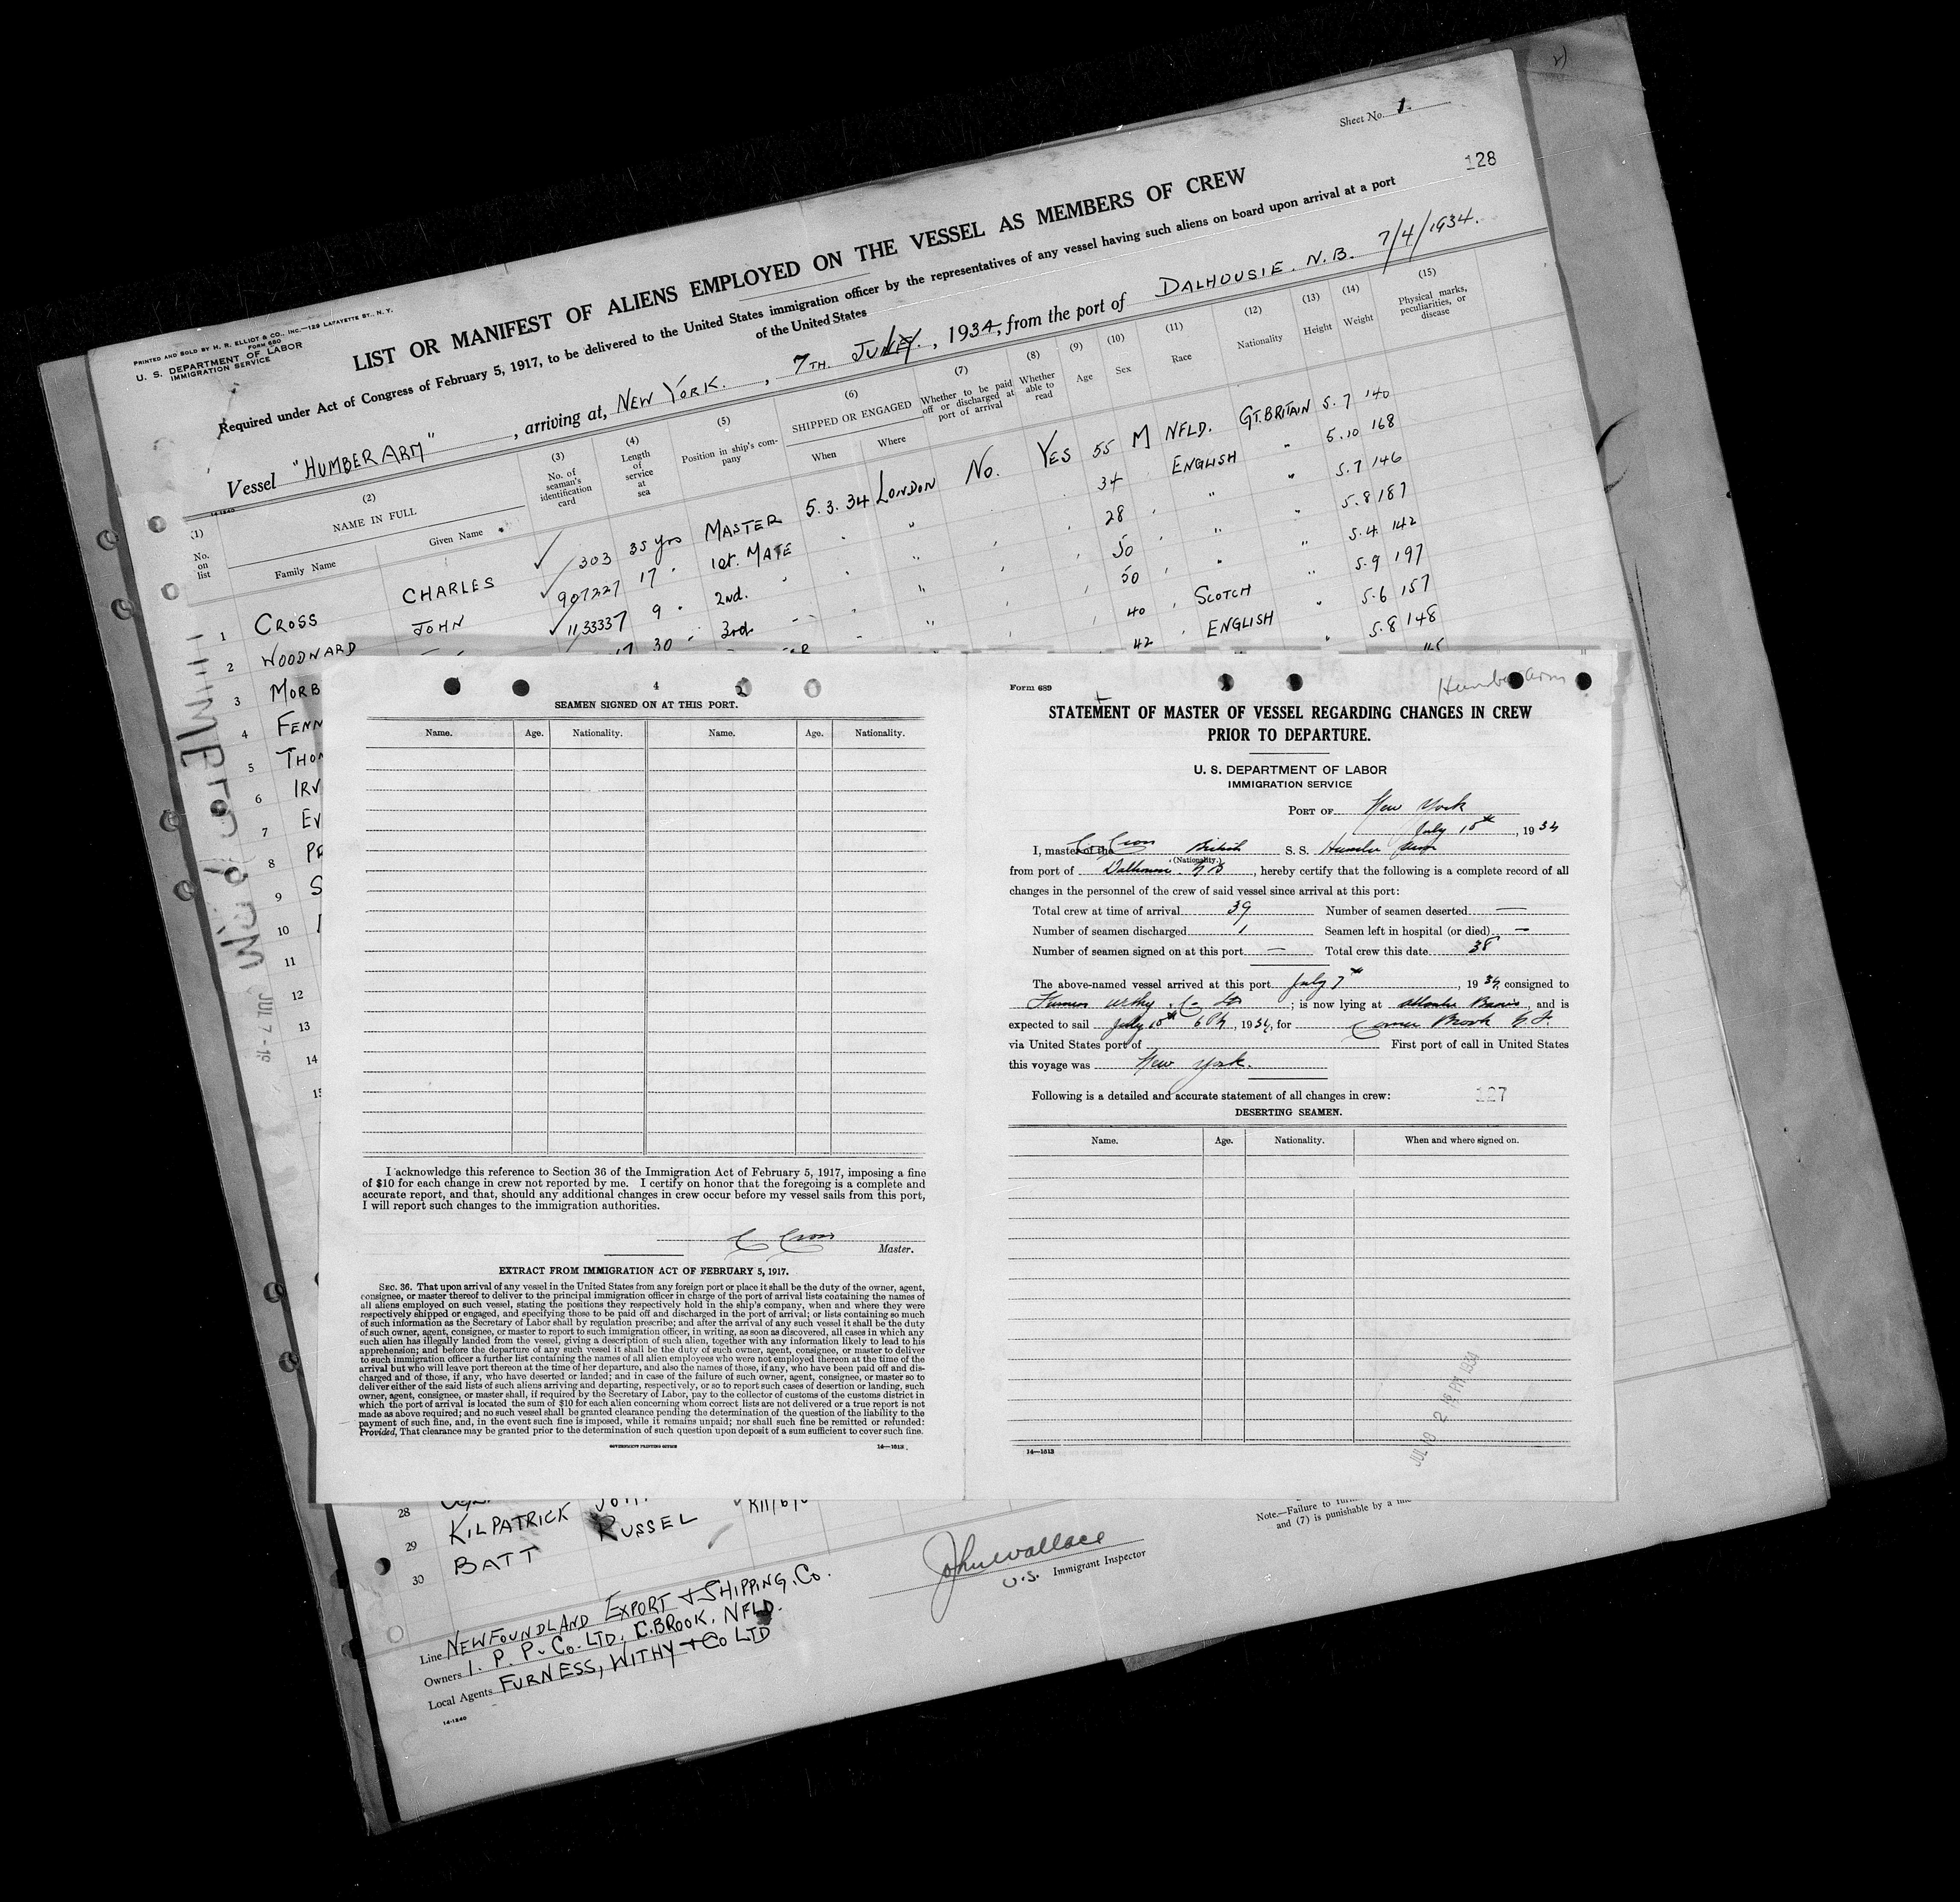 Sheet No. 1.
128
PRINTED AND SOLD BY H. R. ELLIOT & CO., INC.—129 LAFAYETTE ST., N. Y.
FORM 680
U. S. DEPARTMENT OF LABOR
IMMIGRATION SERVICE
LIST OR MANIFEST OF ALIENS EMPLOYED ON THE VESSEL AS MEMBERS OF CREW
Required under Act of Congress of February 5, 1917, to be delivered to the United States immigration officer by the representatives of any vessel having such aliens on board upon arrival at a port
of the United States
Vessel "HUMBER ARM", arriving at, NEW YORK., 7TH. JULY., 1934, from the port of DALHOUSIE. N.B. 7/4/1934.
14-1240
(1) (2) (3) (4) (5) (6) (7) (8) (9) (10) (11) (12) (13) (14) (15)
No. on list
NAME IN FULL
Family Name Given Name
No. of seaman's identification card
Length of service at sea
Position in ship's company
SHIPPED OR ENGAGED
When Where
Whether to be paid off or discharged at port of arrival
Whether able to read
Age
Sex
Race
Nationality
Height
Weight
Physical marks, peculiarities, or disease
1 CROSS CHARLES 303 35 yrs MASTER 5.3.34 LONDON NO. YES 55 M NFLD. GT. BRITAIN 5.7 140
2 WOODWARD JOHN 907227 17 " 1st. MATE " " 34 ENGLISH " 5.10 168
3 MORB 1133337 9 " 2nd. " " " 28 " " 5.7 146
4 FENN 30 " 3rd. " " 50 " " 5.8 187
5 THOM 50 " " 5.4 142
6 IRV 40 SCOTCH " 5.9 197
7 EV 42 ENGLISH " 5.6 157
8 PR 5.8 148
9 S
10
11
12
13
14
HUMBER ARM
JUL 7 - 19
4
SEAMEN SIGNED ON AT THIS PORT.
Name. Age. Nationality. Name. Age. Nationality.
I acknowledge this reference to Section 36 of the Immigration Act of February 5, 1917, imposing a fine
of $10 for each change in crew not reported by me. I certify on honor that the foregoing is a complete and
accurate report, and that, should any additional changes in crew occur before my vessel sails from this port,
I will report such changes to the immigration authorities.
C Cross
Master.
EXTRACT FROM IMMIGRATION ACT OF FEBRUARY 5, 1917.
SEC. 36. That upon arrival of any vessel in the United States from any foreign port or place it shall be the duty of the owner, agent,
consignee, or master thereof to deliver to the principal immigration officer in charge of the port of arrival lists containing the names of
all aliens employed on such vessel, stating the positions they respectively hold in the ship's company, when and where they were
respectively shipped or engaged, and specifying those to be paid off and discharged in the port of arrival; or lists containing so much
of such information as the Secretary of Labor shall by regulation prescribe; and after the arrival of any such vessel it shall be the duty
of such owner, agent, consignee, or master to report to such immigration officer, in writing, as soon as discovered, all cases in which any
such alien has illegally landed from the vessel, giving a description of such alien, together with any information likely to lead to his
apprehension; and before the departure of any such vessel it shall be the duty of such owner, agent, consignee, or master to deliver
to such immigration officer a further list containing the names of all alien employees who were not employed thereon at the time of the
arrival but who will leave port thereon at the time of her departure, and also the names of those, if any, who have been paid off and dis-
charged and of those, if any, who have deserted or landed; and in case of the failure of such owner, agent, consignee, or master so to
deliver either of the said lists of such aliens arriving and departing, respectively, or so to report such cases of desertion or landing, such
owner, agent, consignee, or master shall, if required by the Secretary of Labor, pay to the collector of customs of the customs district in
which the port of arrival is located the sum of $10 for each alien concerning whom correct lists are not delivered or a true report is not
made as above required; and no such vessel shall be granted clearance pending the determination of the question of the liability to the
payment of such fine, and, in the event such fine is imposed, while it remains unpaid; nor shall such fine be remitted or refunded:
Provided, That clearance may be granted prior to the determination of such question upon deposit of a sum sufficient to cover such fine.
GOVERNMENT PRINTING OFFICE 14—1012
Form 689
Humber Arm
STATEMENT OF MASTER OF VESSEL REGARDING CHANGES IN CREW
PRIOR TO DEPARTURE.
U. S. DEPARTMENT OF LABOR
IMMIGRATION SERVICE
PORT OF New York
July 18th, 1934
I, master of the C Cross British S. S. Humber Arm
(Nationality.)
from port of Dalhousie. N B, hereby certify that the following is a complete record of all
changes in the personnel of the crew of said vessel since arrival at this port:
Total crew at time of arrival 39 Number of seamen deserted —
Number of seamen discharged 1 Seamen left in hospital (or died) —
Number of seamen signed on at this port — Total crew this date 38
The above-named vessel arrived at this port July 7th, 1934, consigned to
Furness Withy & Co Ltd; is now lying at Atlantic Basin, and is
expected to sail July 18th 6 PM, 1934, for Corner Brook N. F.
via United States port of First port of call in United States
this voyage was New York.
Following is a detailed and accurate statement of all changes in crew: 127
DESERTING SEAMEN.
Name. Age. Nationality. When and where signed on.
14—1012
JUL 18 2 PM 1934
28
29 KILPATRICK JOHN
30 BATT RUSSEL
John Wallace
U.S. Immigrant Inspector
Note.—Failure to
and (7) is punishable by a
Line NEWFOUNDLAND EXPORT & SHIPPING. Co.
Owners I. P. P. Co. LTD. C. BROOK, NFLD.
Local Agents FURNESS, WITHY & Co LTD
14-1240